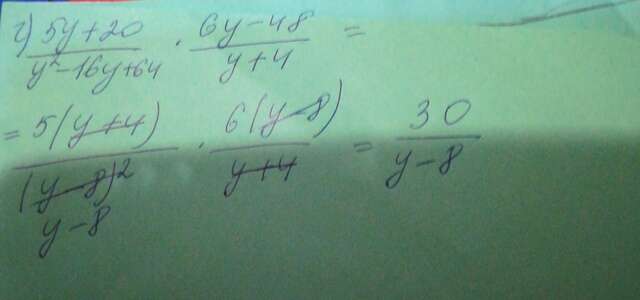 г) (5y+20)/(y²-16y+64) · (6y-48)/(y+4) =
= 5(y+4)/(y-8)² · 6(y-8)/(y+4) = 30/(y-8)
y-8